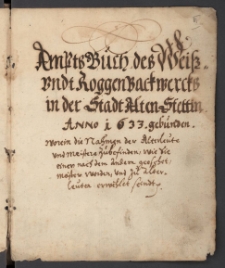 Ampts Buch des Weiß
vndt Roggenbackwercks
in der Stadt Alten-Stettin
ANNO 1633. gebunden.
Worin die Nahmen der Alterleute
vnd Meisters zubefinden, wie die
einen nach dem andern
worden, vnd zu Alter
leuten erwehlet seindt.